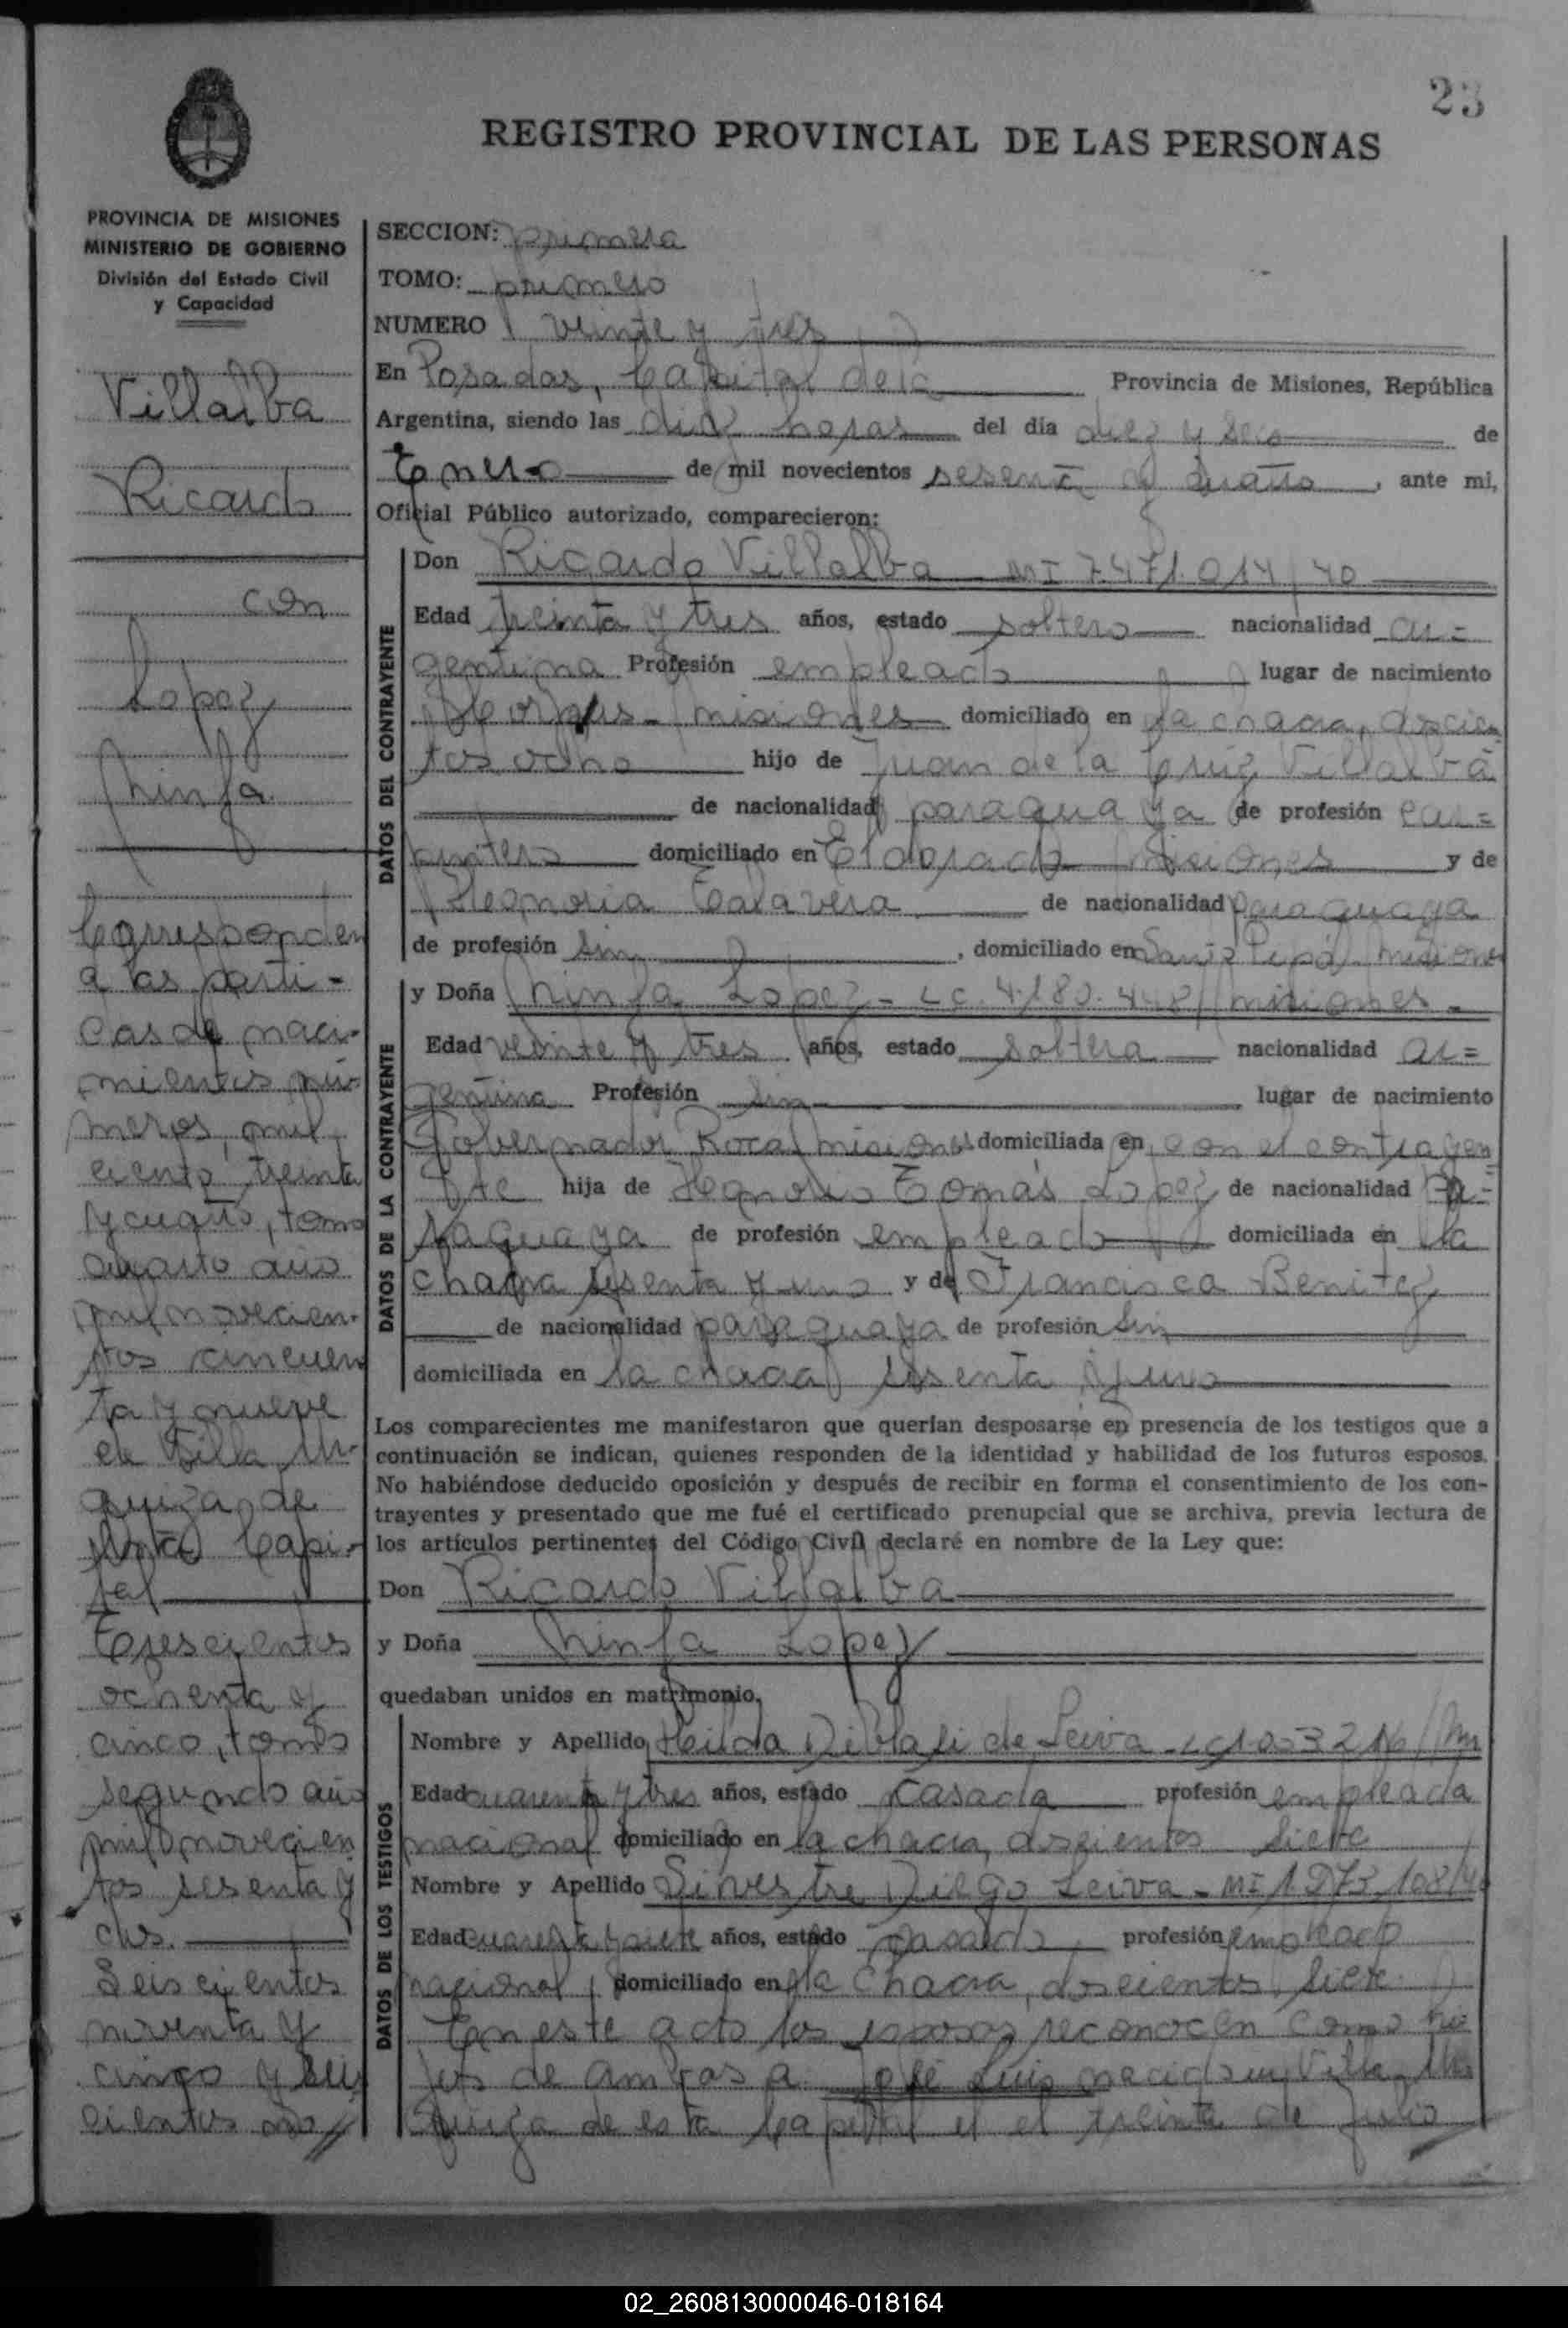 23
REGISTRO PROVINCIAL DE LAS PERSONAS
PROVINCIA DE MISIONES
MINISTERIO DE GOBIERNO
División del Estado Civil
y Capacidad
Villalba
Ricardo
con
Lopez
Ninfa
Corresponden
a las parti-
das de naci-
mientos nú-
meros, mil
ciento treinta
y cuatro, tomo
cuarto año
mil novecien-
tos cincuen
ta y nueve
de Villa Ur-
quiza de
esta Capi-
tal
Trescientos
ochenta y
cinco, tomo
segundo año
mil novecien
tos sesenta y
dos.
Seiscientos
noventa y
cinco y seis
cientos
SECCION: primera
TOMO: primero
NUMERO veinte y tres
En Posadas, Capital de la Provincia de Misiones, República
Argentina, siendo las diez horas del día diez y seis de
Enero de mil novecientos sesenta y cuatro, ante mi,
Oficial Público autorizado, comparecieron:
DATOS DEL CONTRAYENTE
Don Ricardo Villalba MI 7.471.014/40
Edad treinta y tres años, estado soltero nacionalidad ar=
gentina Profesión empleado lugar de nacimiento
Corpus - Misiones domiciliado en la chacra, doscien
tos ocho hijo de Juan de la Cruz Villalba
de nacionalidad paraguaya de profesión car=
pintero domiciliado en Eldorado Misiones y de
Talavera de nacionalidad paraguaya
de profesión sin, domiciliado en Santo Pipó Misiones
DATOS DE LA CONTRAYENTE
y Doña Ninfa Lopez - LC. 4.180.448/Misiones -
Edad veinte y tres años, estado soltera nacionalidad ar=
gentina Profesión sin lugar de nacimiento
Gobernador Roca Misiones domiciliada en con el contrayen
te hija de Honorio Tomás Lopez de nacionalidad pa=
raguaya de profesión empleado domiciliada en la
chacra sesenta y uno y de Francisca Benitez
de nacionalidad paraguaya de profesión sin
domiciliada en la chacra sesenta y uno
Los comparecientes me manifestaron que querían desposarse en presencia de los testigos que a
continuación se indican, quienes responden de la identidad y habilidad de los futuros esposos.
No habiéndose deducido oposición y después de recibir en forma el consentimiento de los con-
trayentes y presentado que me fué el certificado prenupcial que se archiva, previa lectura de
los artículos pertinentes del Código Civil declaré en nombre de la Ley que:
Don Ricardo Villalba
y Doña Ninfa Lopez
quedaban unidos en matrimonio.
DATOS DE LOS TESTIGOS
Nombre y Apellido Hilda Diblasi de Leiva
Edad cuarenta y tres años, estado casada profesión empleada
nacional domiciliado en la chacra, doscientos siete
Nombre y Apellido Silvestre Diego Leiva - MI
Edad cuarenta y siete años, estado casado profesión empleado
nacional domiciliado en la Chacra, doscientos siete
En este acto los esposos reconocen como hi
jos de ambos a José Luis nacido en Villa Ur
quiza de esta Capital el el treinta de Julio
02_260813000046-018164